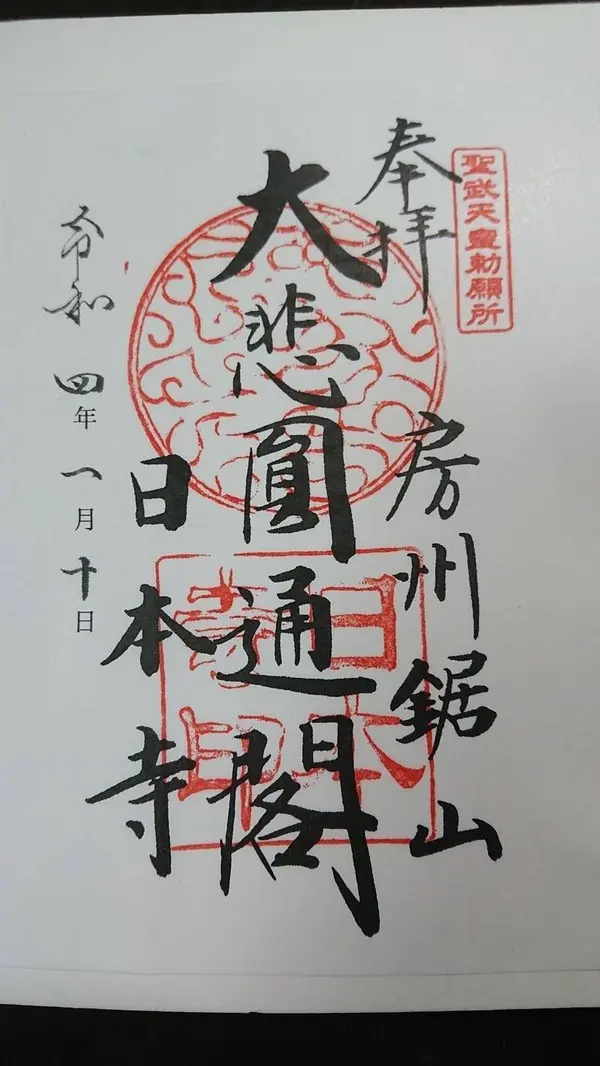 聖武天皇勅願所
奉拝
房州鋸山
大悲圓通閣
日本寺
令和四年一月十日
日本
寺印